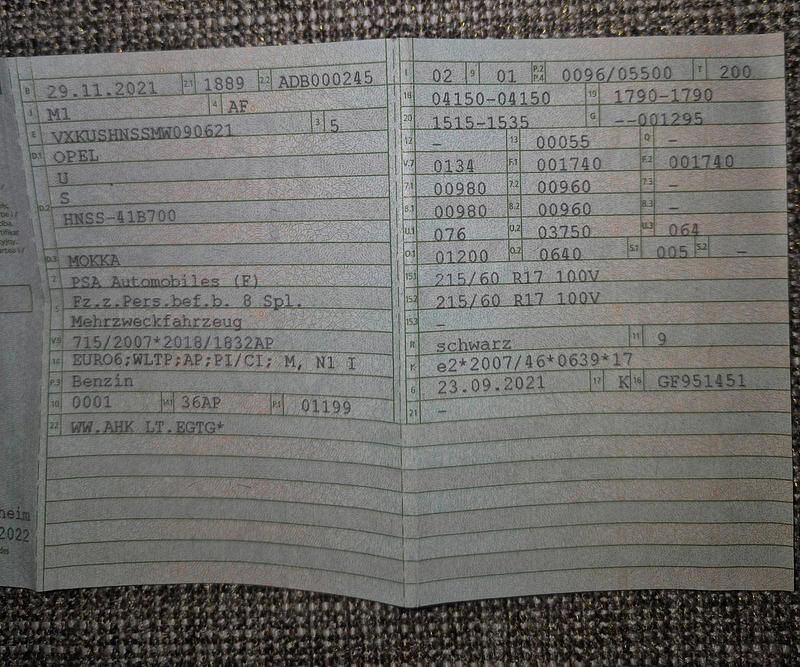 B 29.11.2021 2.1 1889 2.2 ADB000245
J M1 4 AF
E VXKUSHNSSMW090621 3 5
D.1 OPEL
U
D.2 S
HNSS-41B700
D.3 MOKKA
2 PSA Automobiles (F)
5 Fz.z.Pers.bef.b. 8 Spl.
Mehrzweckfahrzeug
V.9 715/2007*2018/1832AP
14 EURO6;WLTP;AP;PI/CI; M, N1 I
P.3 Benzin
10 0001 14.1 36AP P.1 01199
22 WW.AHK LT.EGTG*
L 02 9 01 P.2 P.4 0096/05500 T 200
18 04150-04150 19 1790-1790
20 1515-1535 G --001295
12 - 13 00055 Q -
V.7 0134 F.1 001740 F.2 001740
7.1 00980 7.2 00960 7.3 -
8.1 00980 8.2 00960 8.3 -
U.1 076 U.2 03750 U.3 064
O.1 01200 O.2 0640 S.1 005 S.2 -
15.1 215/60 R17 100V
15.2 215/60 R17 100V
15.3 -
R schwarz 11 9
K e2*2007/46*0639*17
6 23.09.2021 17 K 16 GF951451
21 -
heim
2022